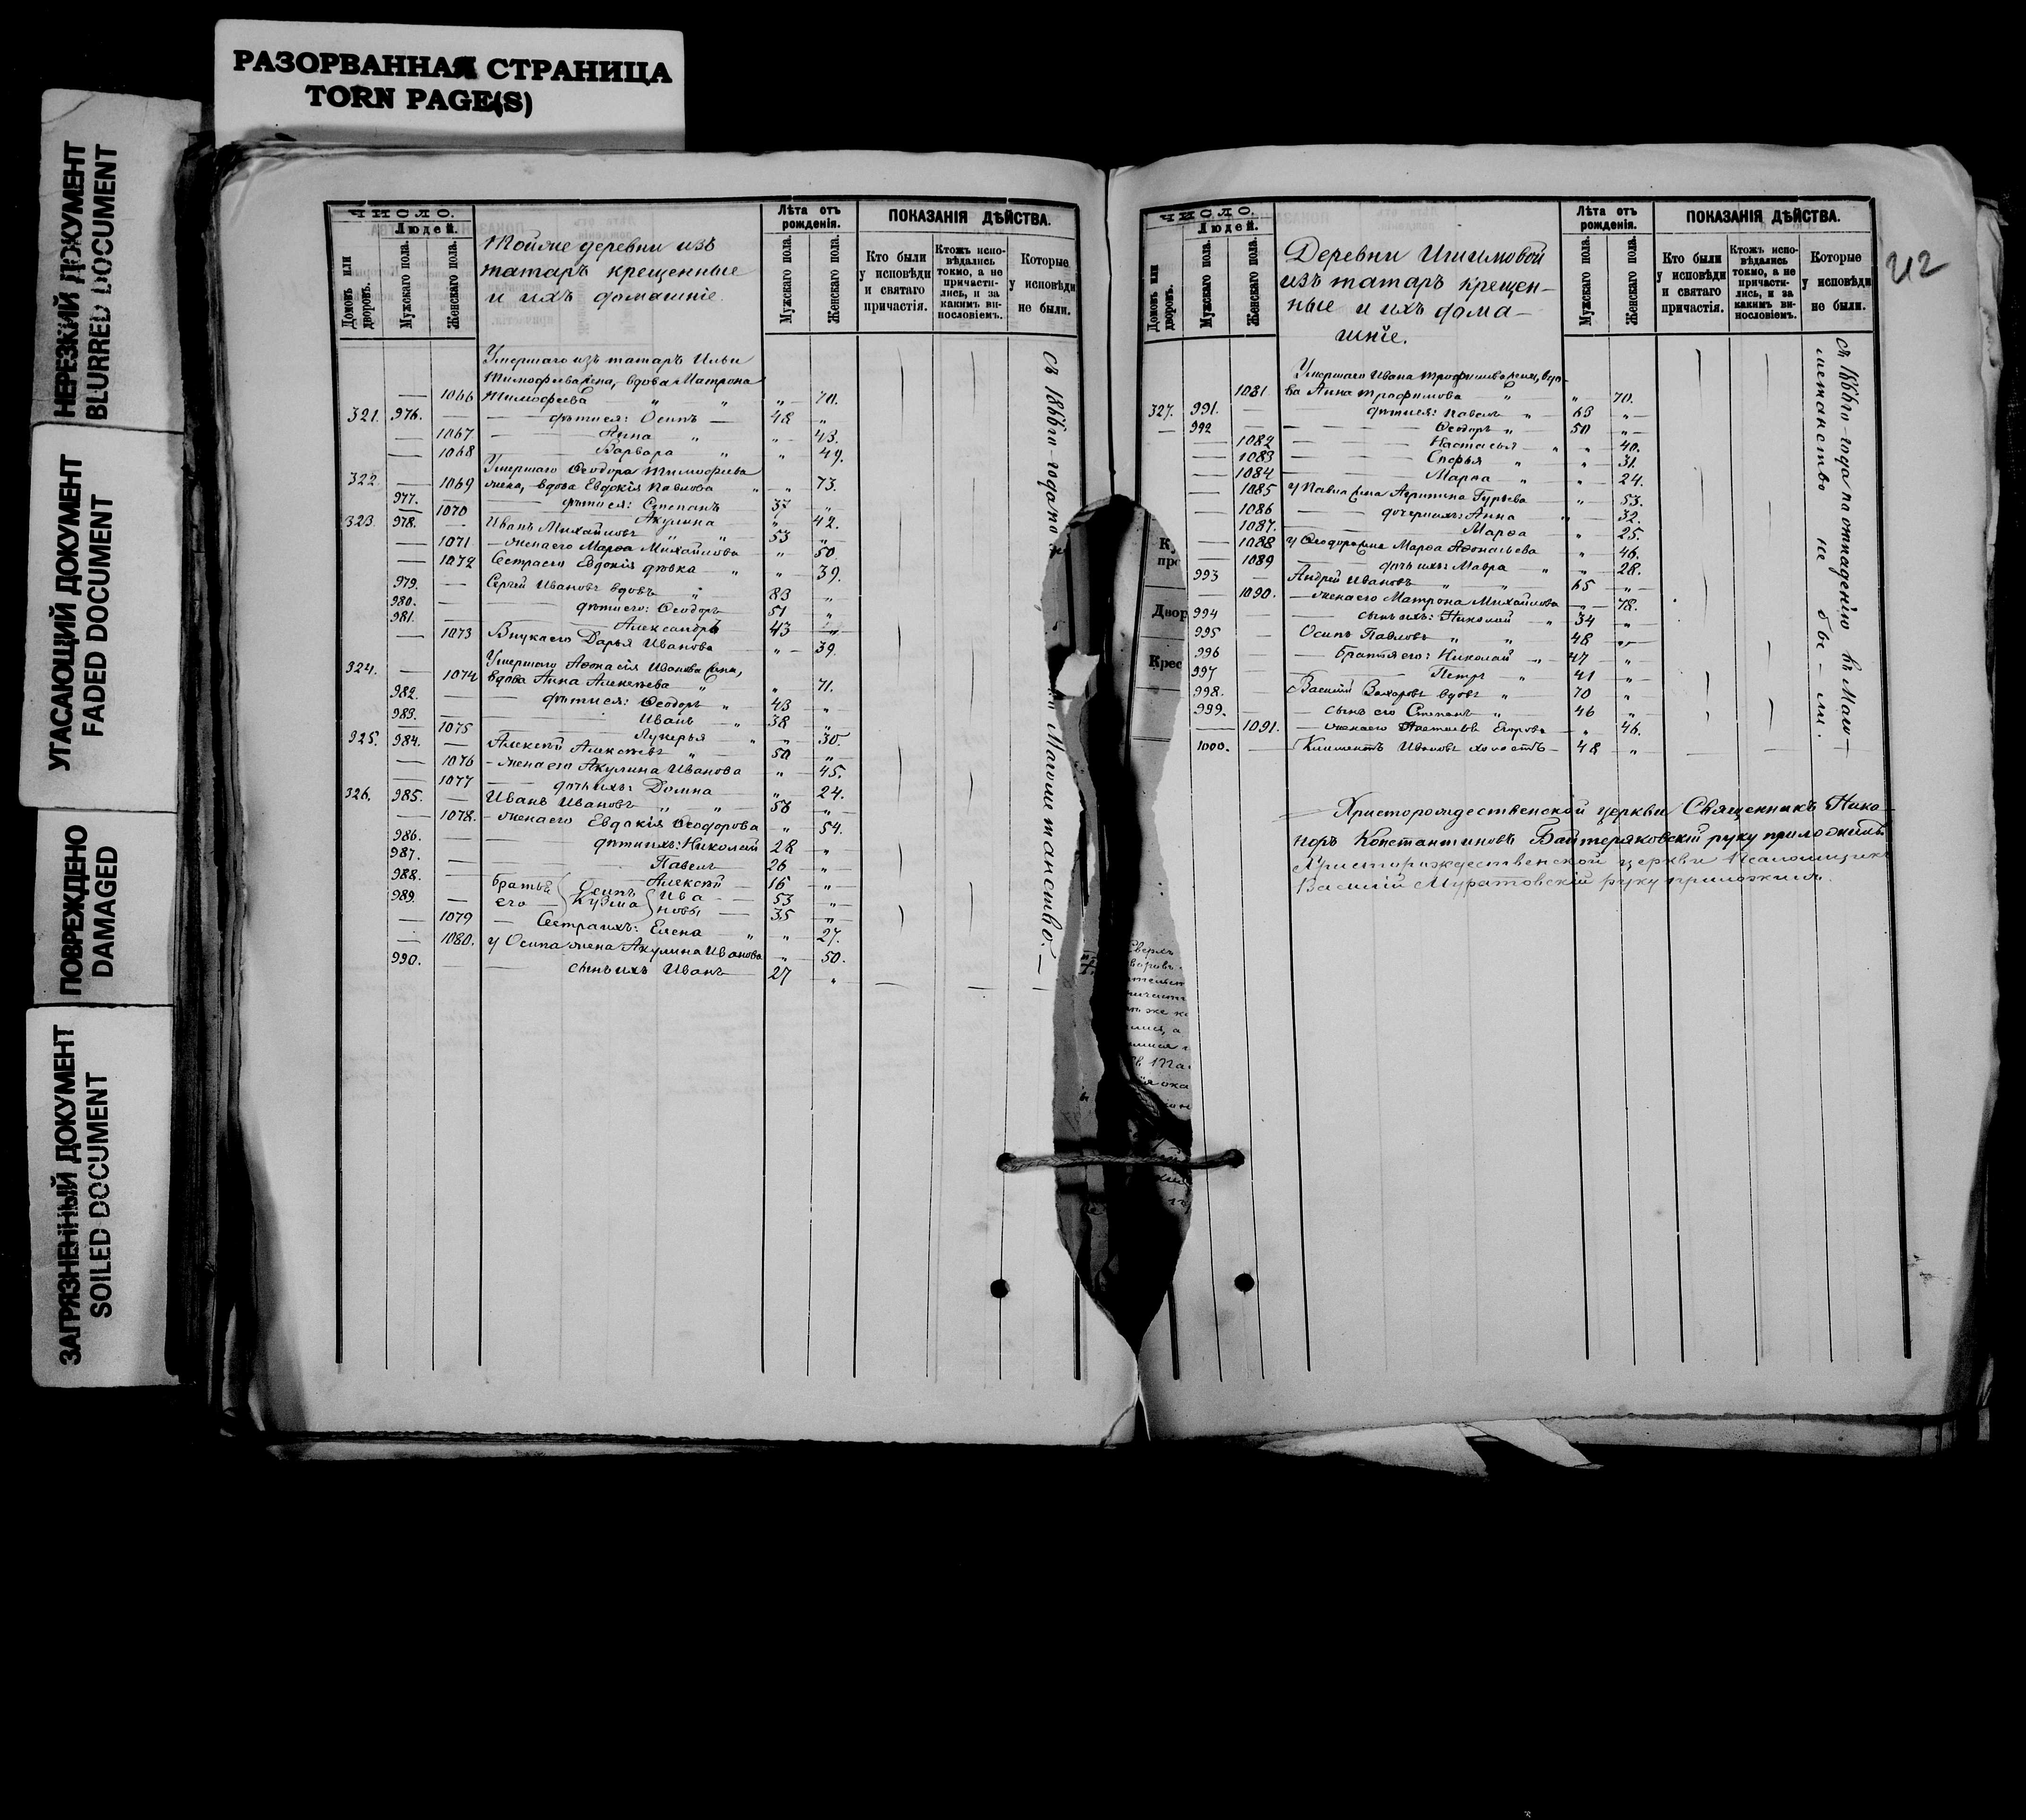 РАЗОРВАННАЯ СТРАНИЦА
TORN PAGE(S)
НЕРЕЗКИЙ ДОКУМЕНТ
BLURRED DOCUMENT
УГАСАЮЩИЙ ДОКУМЕНТ
FADED DOCUMENT
ПОВРЕЖДЕНО
DAMAGED
ЗАГРЯЗНЕННЫЙ ДОКУМЕНТ
SOILED DOCUMENT
ЧИСЛО.
Людей.
Домовъ или дворовъ.
Мужскаго пола.
Женскаго пола.
Тойже деревни изъ
татаръ крещенные
и ихъ домашніе.
Лѣта отъ рожденія.
Мужскаго пола.
Женскаго пола.
ПОКАЗАНІЯ ДѢЙСТВА.
Кто были у исповѣди и святаго причастія.
Ктожъ исповѣдались токмо, а не причастились, и за какимъ винословіемъ.
Которые у исповѣди не были.
Умершаго изъ татаръ Ильи
Тимофеева жена, вдова Матрона
— 1066 Тимофеева " " " — 70.
321. 976. — дѣти ея: Осипъ — 48 "
— 1067 — Анна " " — 43.
— 1068 Варвара " " 49.
Умершаго Ѳеодора Тимофеева
322 — 1069 жена, вдова Евдокія Павлова " " 73.
977. — дѣти ея: Степанъ — 37 "
— 1070 Акулина " 42.
323. 978. — Иванъ Михайловъ " " 53 "
— 1071 — жена его Марѳа Михайлова " 50.
— 1072 Сестра его Евдокія дѣвка — " " — 39.
979. — Сергѣй Ивановъ вдовъ " 83 "
980. — дѣти его: Ѳеодоръ 51 "
981. — Александръ 43 — "
— 1073 Внука его Дарья Иванова " — 39.
Умершаго Аѳонасія Иванова жена,
324. — 1074 вдова Анна Алексѣева " " 71.
982. — дѣти ея: Ѳеодоръ " 43 "
983. — Иванъ — " 38 "
— 1075 Лукерья " " — 30.
925. 984. — Алексѣй Алексѣевъ " 50 "
— 1076 — жена его Акулина Иванова " — 45.
— 1077 дочь ихъ: Домна — " 24.
326. 985. — Иванъ Ивановъ " " 56 "
— 1078. — жена его Евдокія Ѳеодорова " — 54.
986. — дѣти ихъ: Николай 28 "
987. — Павелъ — 26 "
988. — Алексѣй — 16 "
989. — Братья его Осипъ Кузма Ивановы — 53 35 "
— 1079 — Сестра ихъ: Елена — " " 27.
— 1080. у Осипа жена Акулина Иванова " — 50.
990. — сынъ ихъ Иванъ — 27 "
съ 1866го года по
Магометанство. —
ЧИСЛО.
Людей.
Домовъ или дворовъ.
Мужскаго пола.
Женскаго пола.
Деревни
изъ татаръ крещен-
ные и ихъ дома-
шніе.
Лѣта отъ рожденія.
Мужскаго пола.
Женскаго пола.
ПОКАЗАНІЯ ДѢЙСТВА.
Кто были у исповѣди и святаго причастія.
Ктожъ исповѣдались токмо, а не причастились, и за какимъ винословіемъ.
Которые у исповѣди не были.
212
Умершаго Ивана Трофимова жена, вдо-
1081 ва Анна Трофимова — " " 70.
327. 991. — дѣти ея: Павелъ " — 63 "
— 992 — Ѳеодоръ " — 50 "
— 1082 — Настасья " " 40.
— 1083 — Софья " " 31.
— 1084 — Марѳа — " " 24.
— 1085 у Павла жена Агрипина Гурьева " 53.
— 1086 — дочери ихъ: Анна " — 32.
— 1087. — Марѳа " 25.
— 1088 у Ѳеодора жена Марѳа Аѳонасьева " 46.
1089 — дочь ихъ: Мавра — " " 28.
993 — Андрей Ивановъ " " 65 "
— 1090. — жена его Матрона Михайлова " — 78.
994 — сынъ ихъ: Николай " 34 "
995 — Осипъ Павловъ " " 48 "
996 — Братья его: Николай " — 47 "
997 — Петръ " 41 "
998. — Василій Захаровъ вдовъ " 70 "
999. — сынъ его Степанъ " 46 "
— 1091. — жена его Егорова " 46.
1000. — Климентъ Ивановъ холостъ — 48 "
съ 1866го года по отпаденію въ Маго-
метанство не бы-ли.
Христорождественской церкви Священникъ Ника-
норъ Константиновъ Байтеряковскій руку приложилъ
Христорождественской церкви Псаломщикъ
Василій Муратовскій руку приложилъ.
Двор
Крес